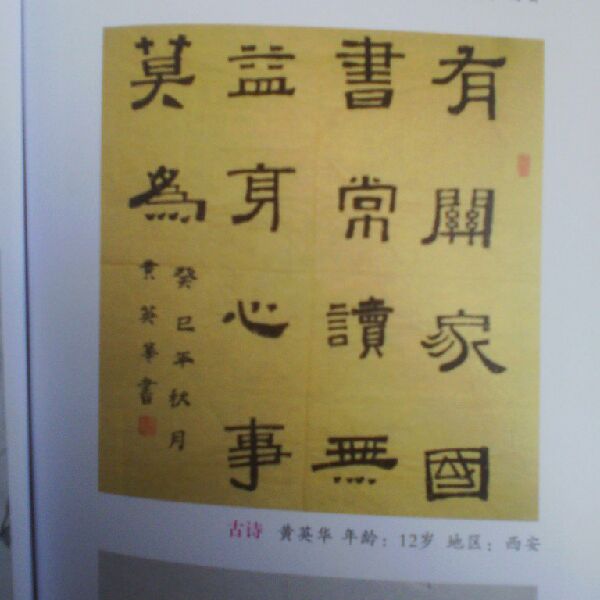 有關家國
書常讀無
益身心事
莫為
癸巳年秋月
黄英華書
古诗 黄英华 年龄：12岁 地区：西安